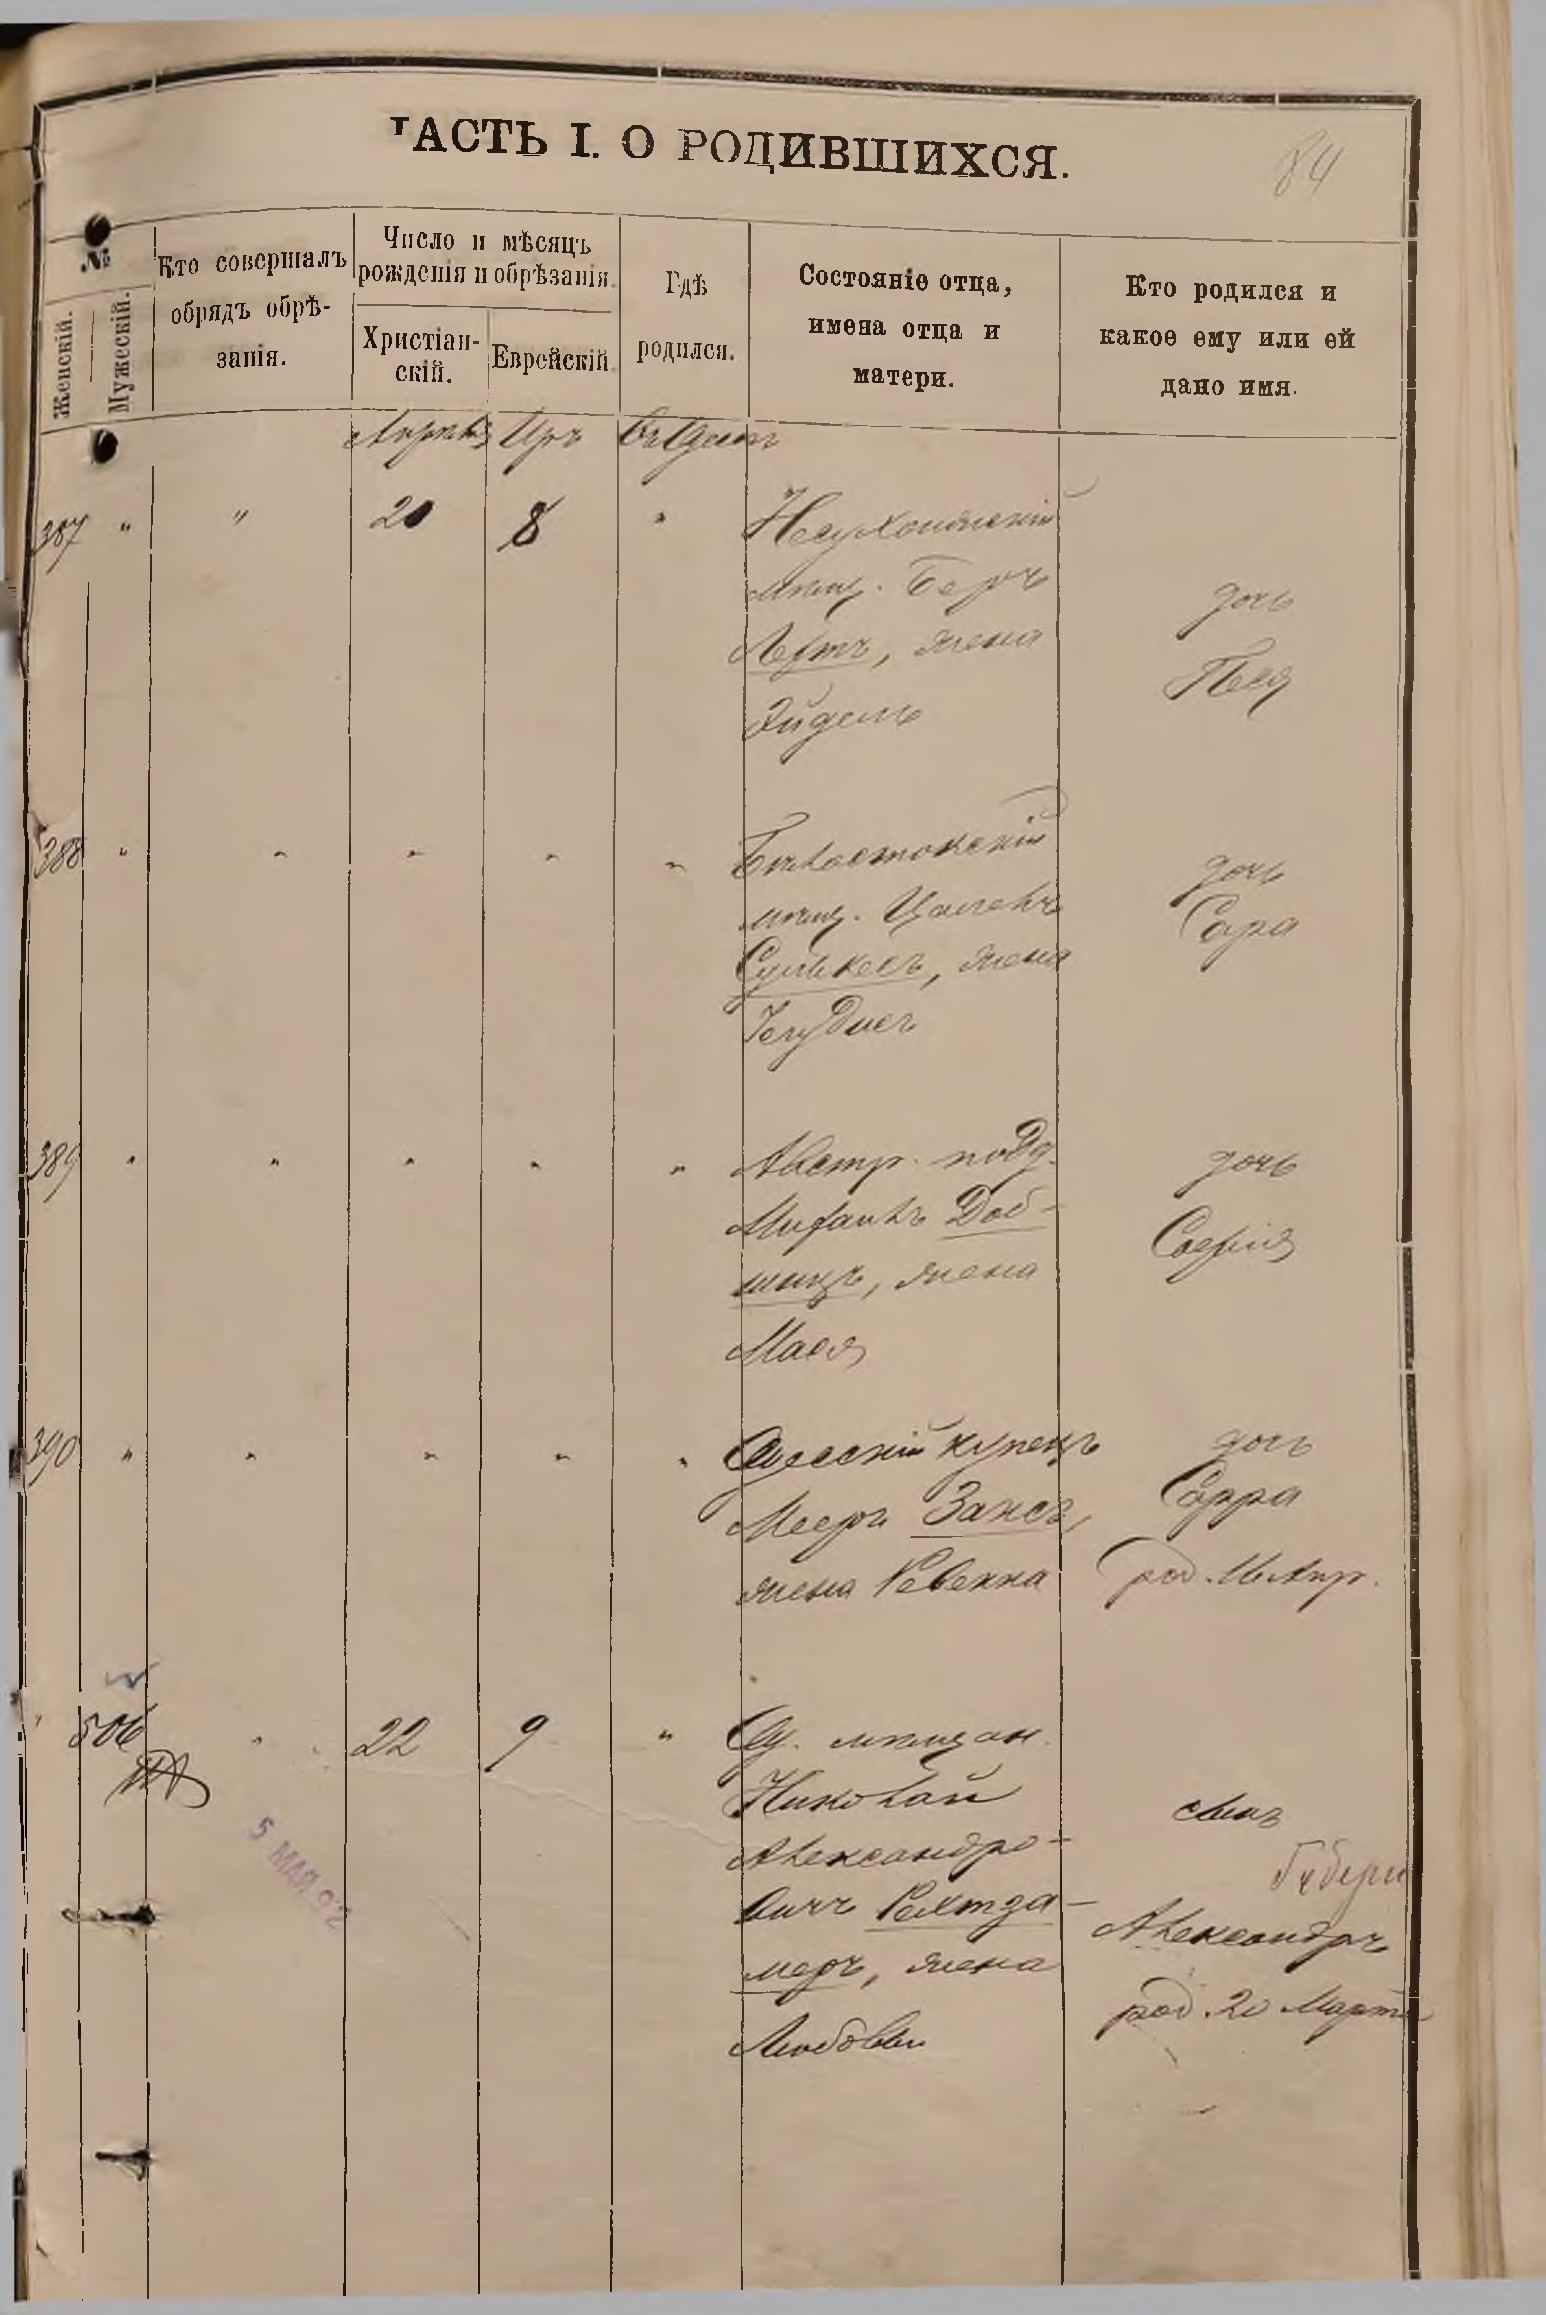 ЧАСТЬ I. О РОДИВШИХСЯ.
84
№
Женскій.
Мужескій.
Кто совершалъ
обрядъ обрѣ-
занія.
Число и мѣсяцъ
рожденія и обрѣзанія.
Христіан-
скій.
Еврейскій.
Гдѣ
родился.
Состояніе отца,
имена отца и
матери.
Кто родился и
какое ему или ей
дано имя.
Апрѣль Иръ Въ Одессѣ
387 " " 20 8 "
мѣщ. Беръ
жена
Эйдель
дочь
Песя
388 " " " " "
Бѣлостокскій
мѣщ. Цалелъ
жена
дочь
Сара
389 " " " " "
Австр. подд.
Доб-
шицъ, жена
Мася
дочь
Софія
390 " " " " "
Одесскій купецъ
Мееръ Заксъ,
жена Ревекка
дочь
Сарра
род. 16 Апр.
" 506 " 22 9 "
Од. мѣщан.
Николай
Александро-
вичъ Рехтза-
меръ, жена
Любовь
сынъ
Александръ
род. 20 Марта
5 МАЯ 92